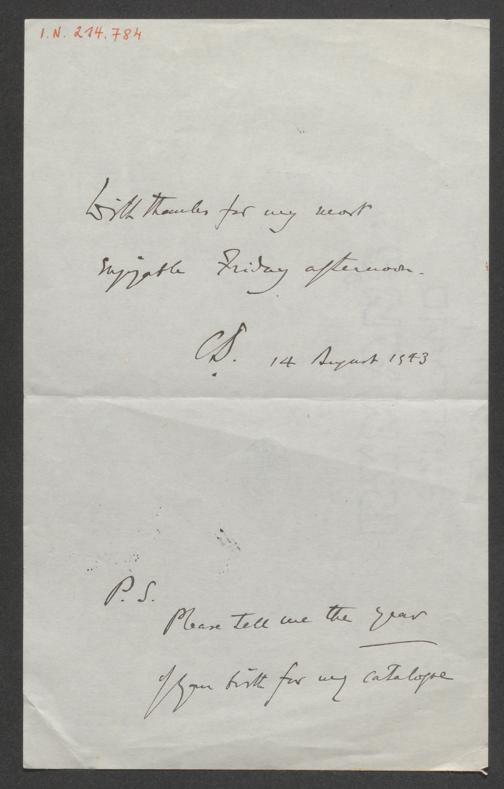 I.N. 214.784
With thanks for my most
enjoyable Friday afternoon.
14 August 1943
P.S.
Please tell me the year
of your birth for my catalogue